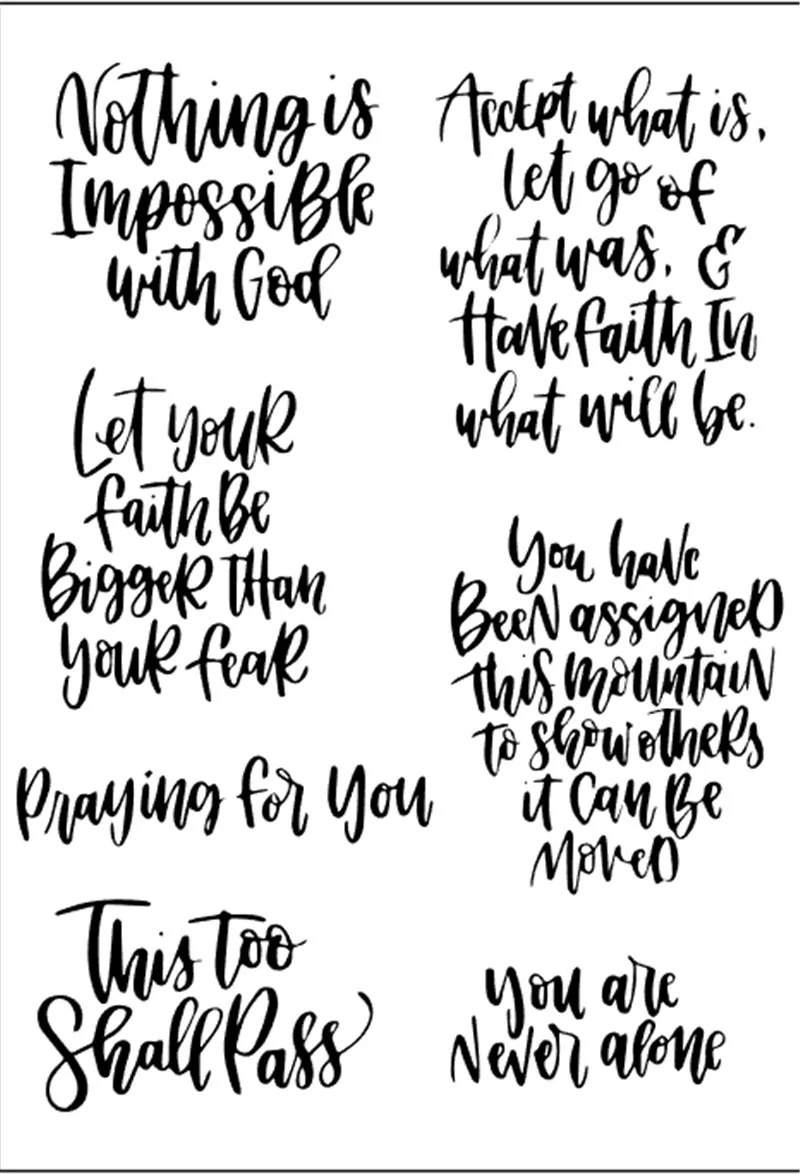 Nothing is
Impossible
with God
Let your
faith Be
Bigger than
your fear
praying for you
This too
Shall Pass
Accept what is,
let go of
what was, &
Have faith In
what will be.
you have
Been assigned
this mountain
to show others
it can Be
moved
you are
never alone